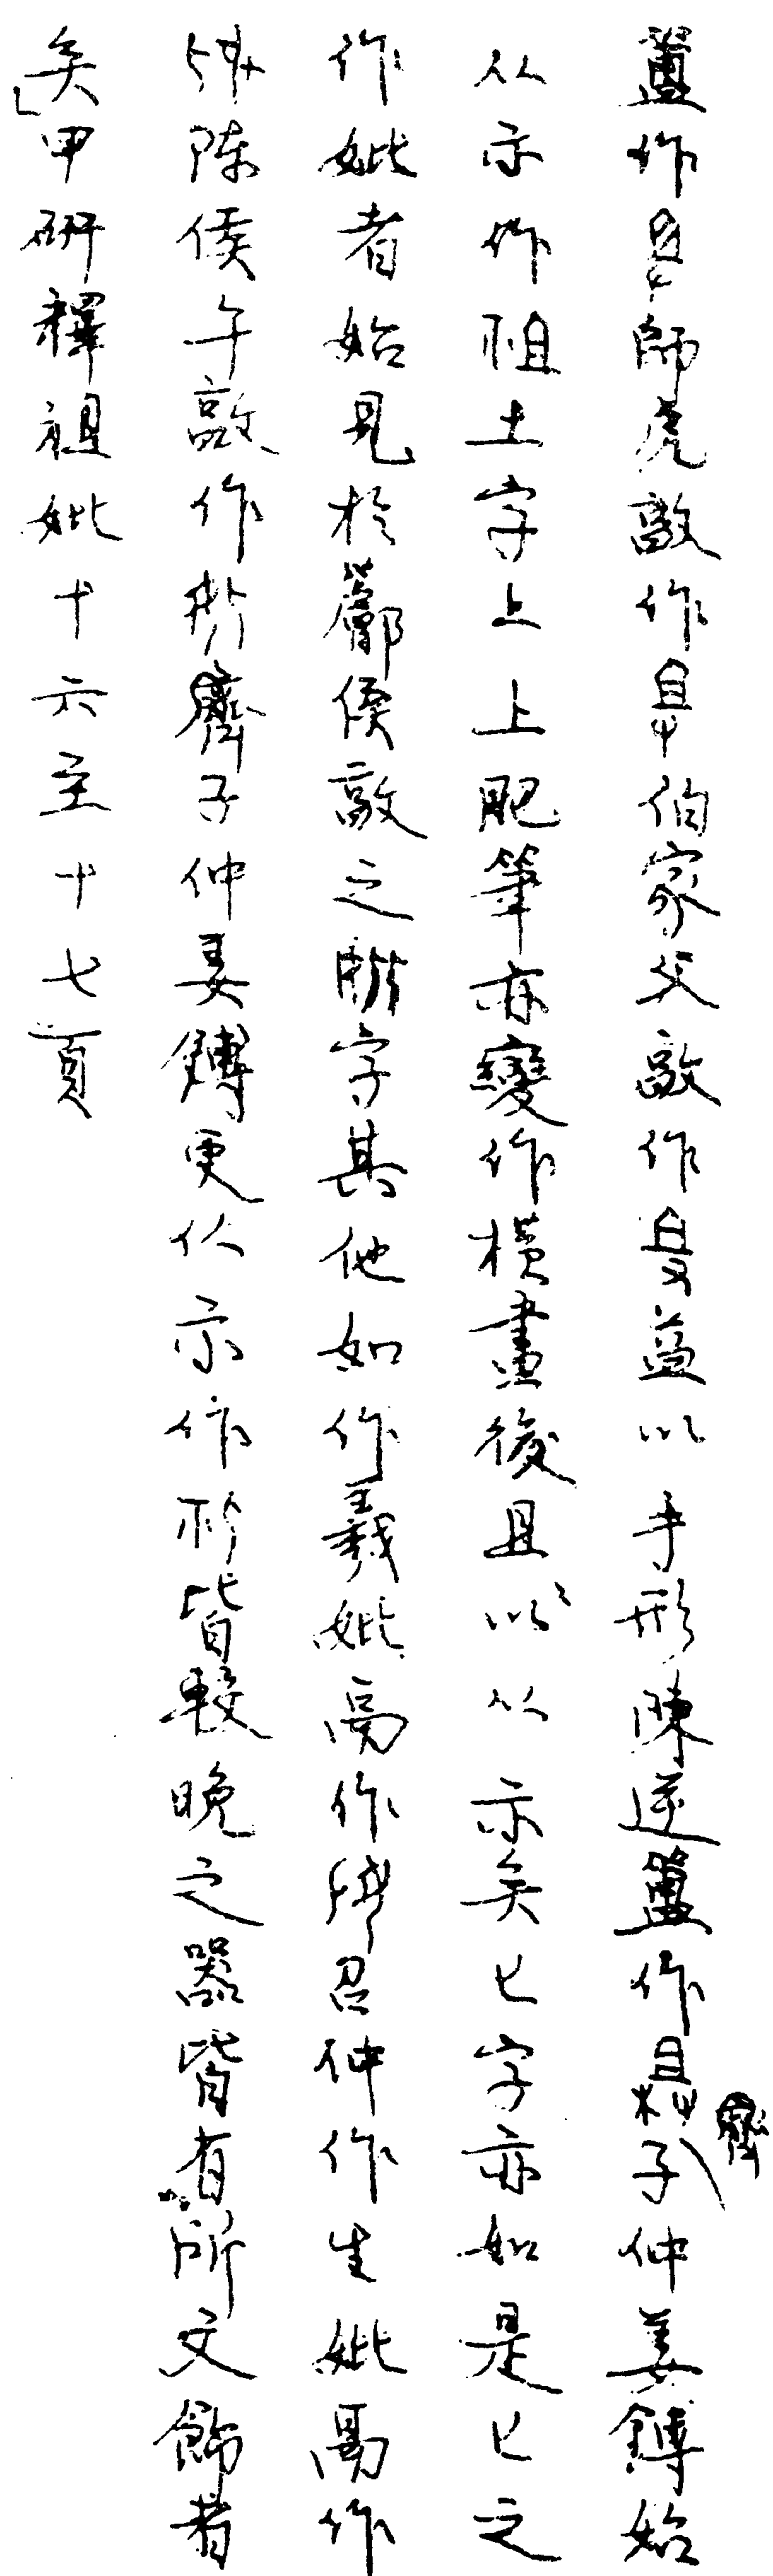 簠作師虎𣪘作伯家父𣪘作葢以手形陳逆簠作齊子仲姜鎛始
从示作祖土字上上肥筆亦變作橫畫後且以以从示矣匕字亦如是匕之
作妣者始見於酅侯𣪘之字其他如作義妣鬲作召仲作生妣鬲作
陳侯午𣪘作齊子仲姜鎛更从示作皆較晚之器皆有所文飾者
矣」甲研釋祖妣十六至十七頁